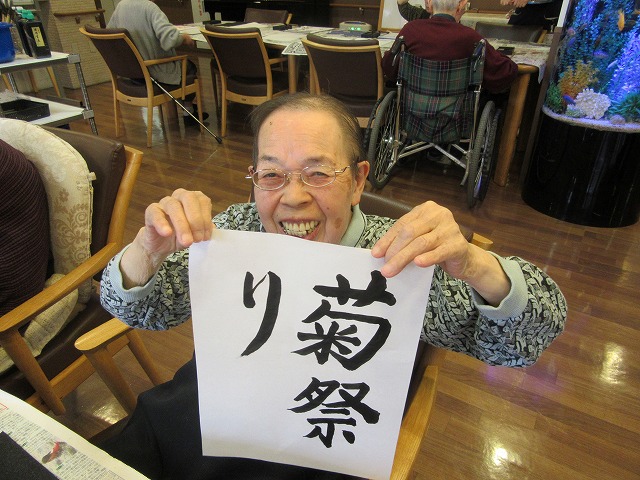 菊祭
り